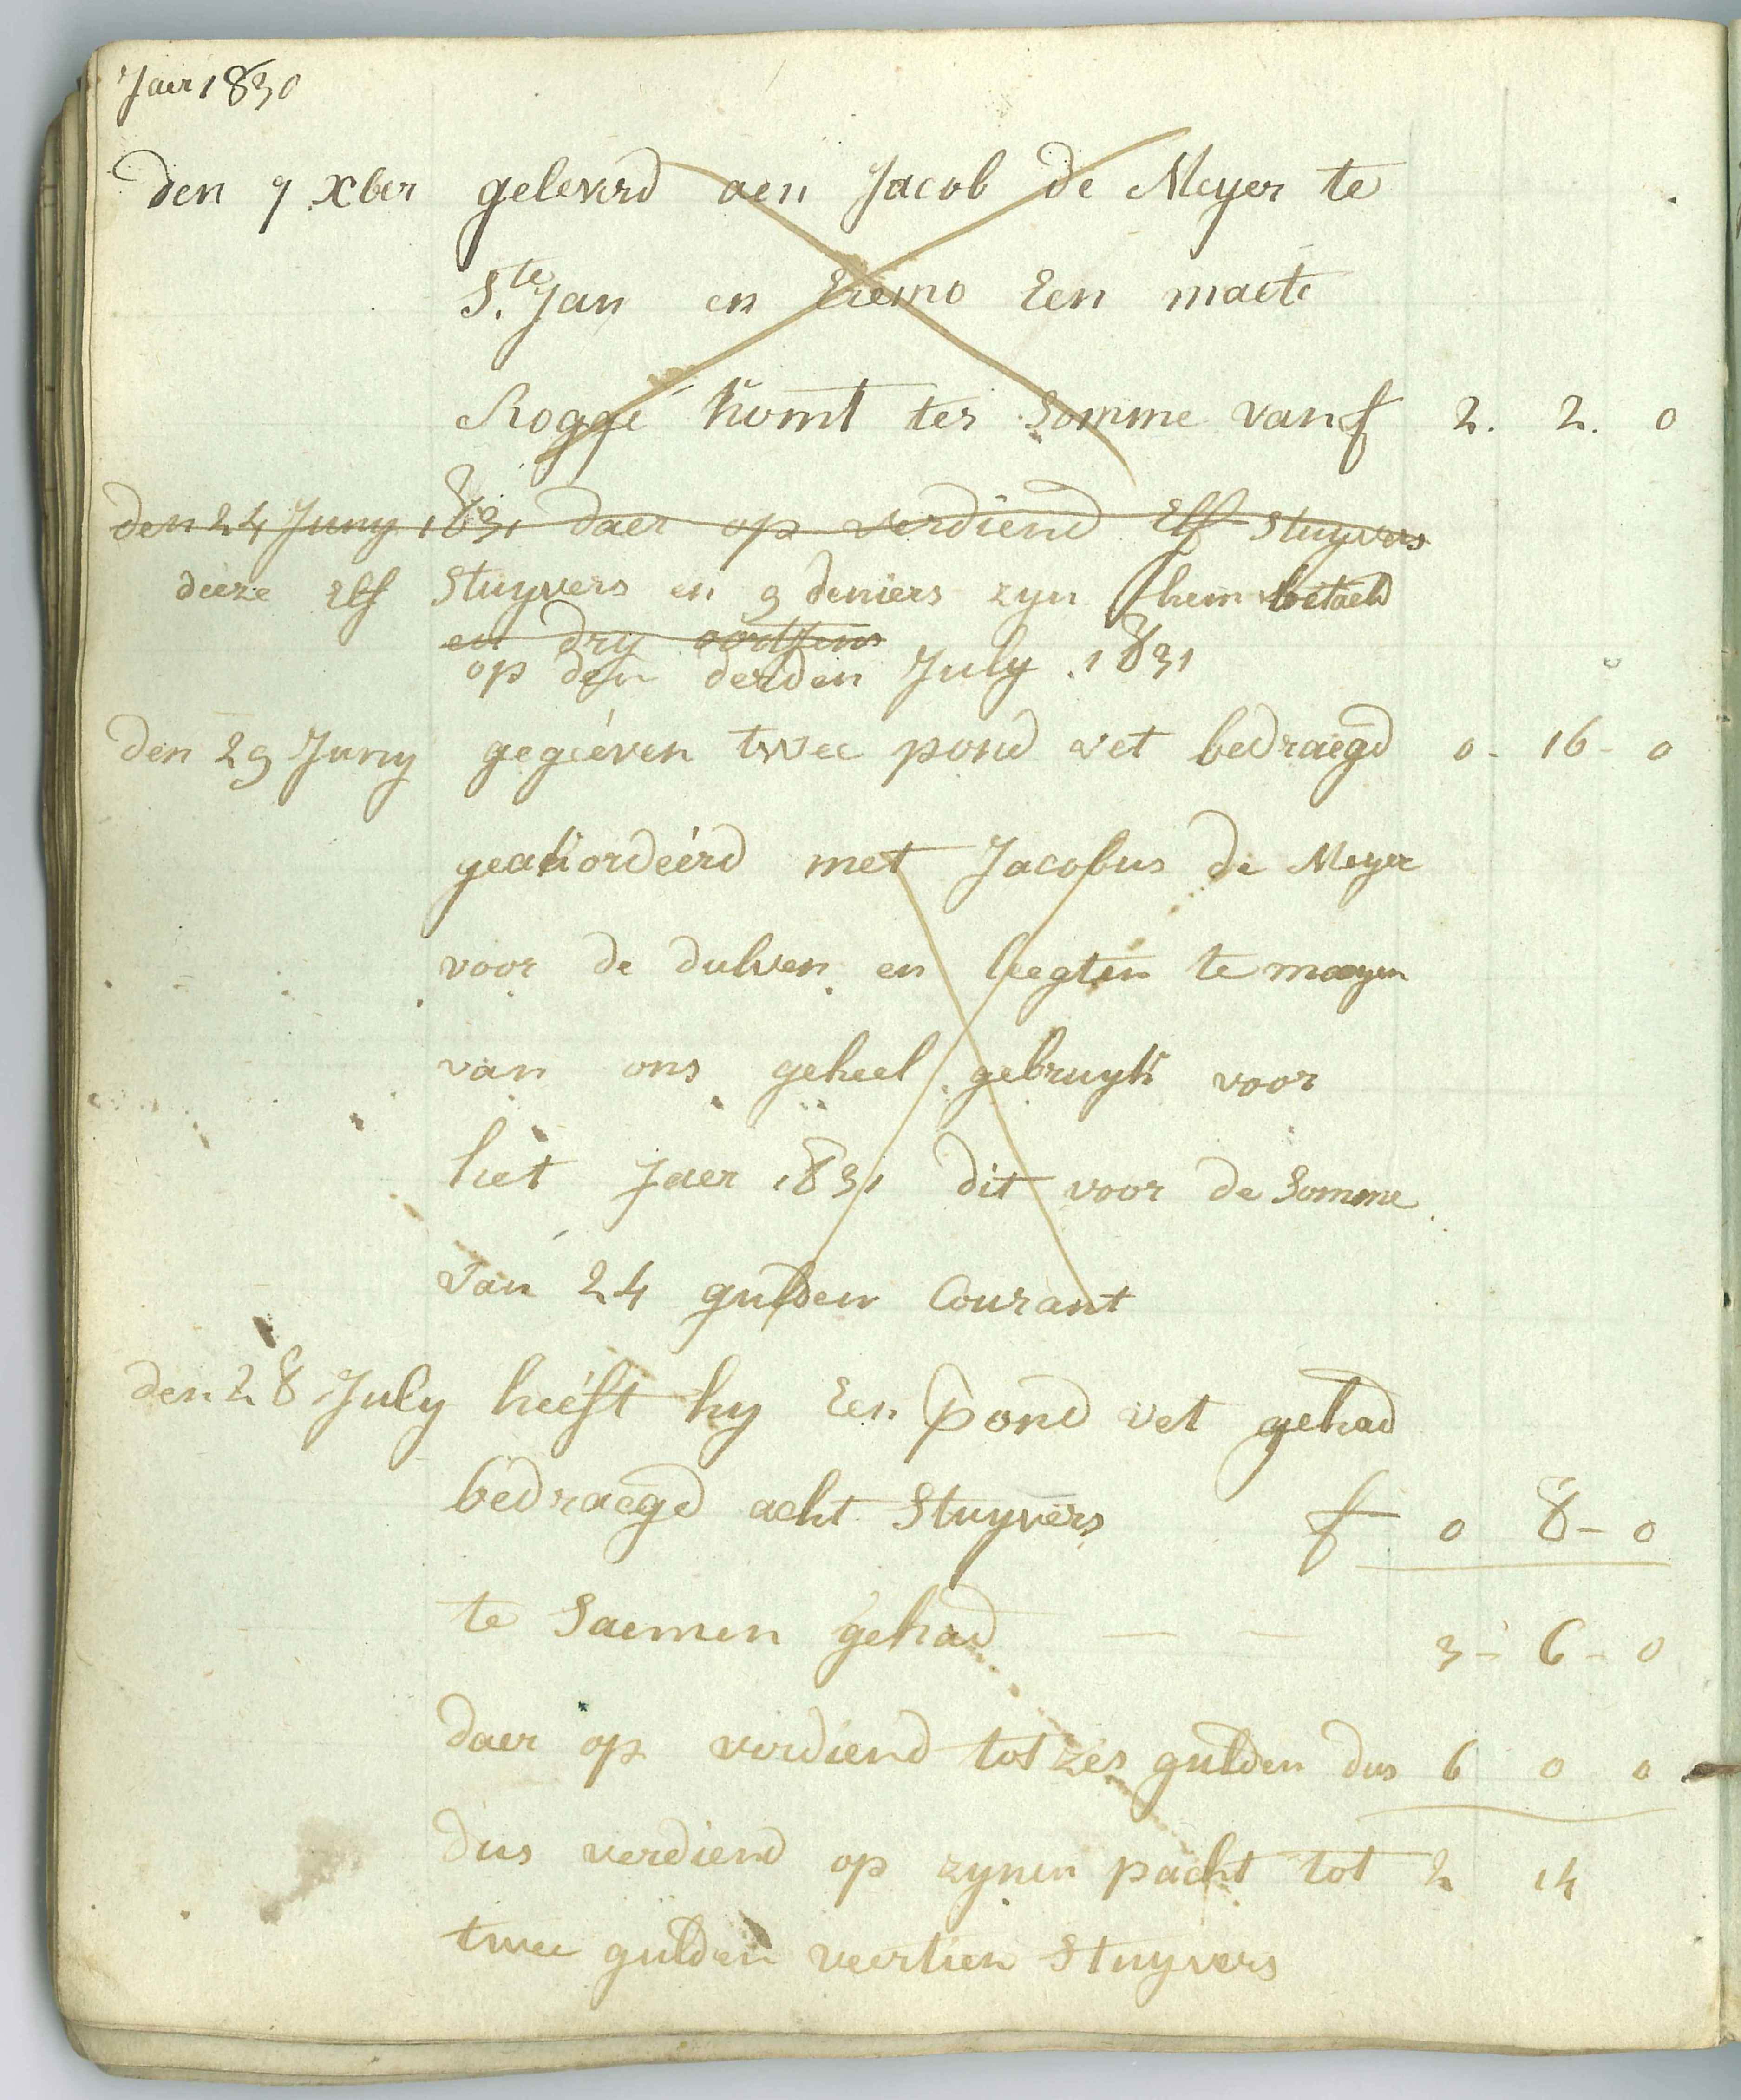 Jaer 1830
den 9 Xber gelevrd aen Jacob de Meyer te
S.te Jan en Eremo Een maete
Rogge komt ter Somme van f 2. 2. 0
den 24 Juny 1831 daer op verdiend Elf Stuyvers
deeze Elf Stuyvers en 9 deniers zyn hem betaeld
en dry oordjens
op den derden July 1831
den 29 Juny gegeéven twee pond vet bedraegd 0 - 16 - 0
geakordeérd met Jacobus de Meyer
voor de dulven en leegten te maeyen
van ons geheel gebruyk voor
het Jaer 1831 dit voor de Somme
van 24 gulden Courant
den 28 July heéft hy Een pond vet gehad
bedraegd acht Stuyvers f 0 8 - 0
te Saemen gehad — — 3 - 6 - 0
daer op verdiend tot zes gulden dus 6 0 0
dus verdiend op zynen pacht tot 2 14
twee gulden veertien Stuyvers